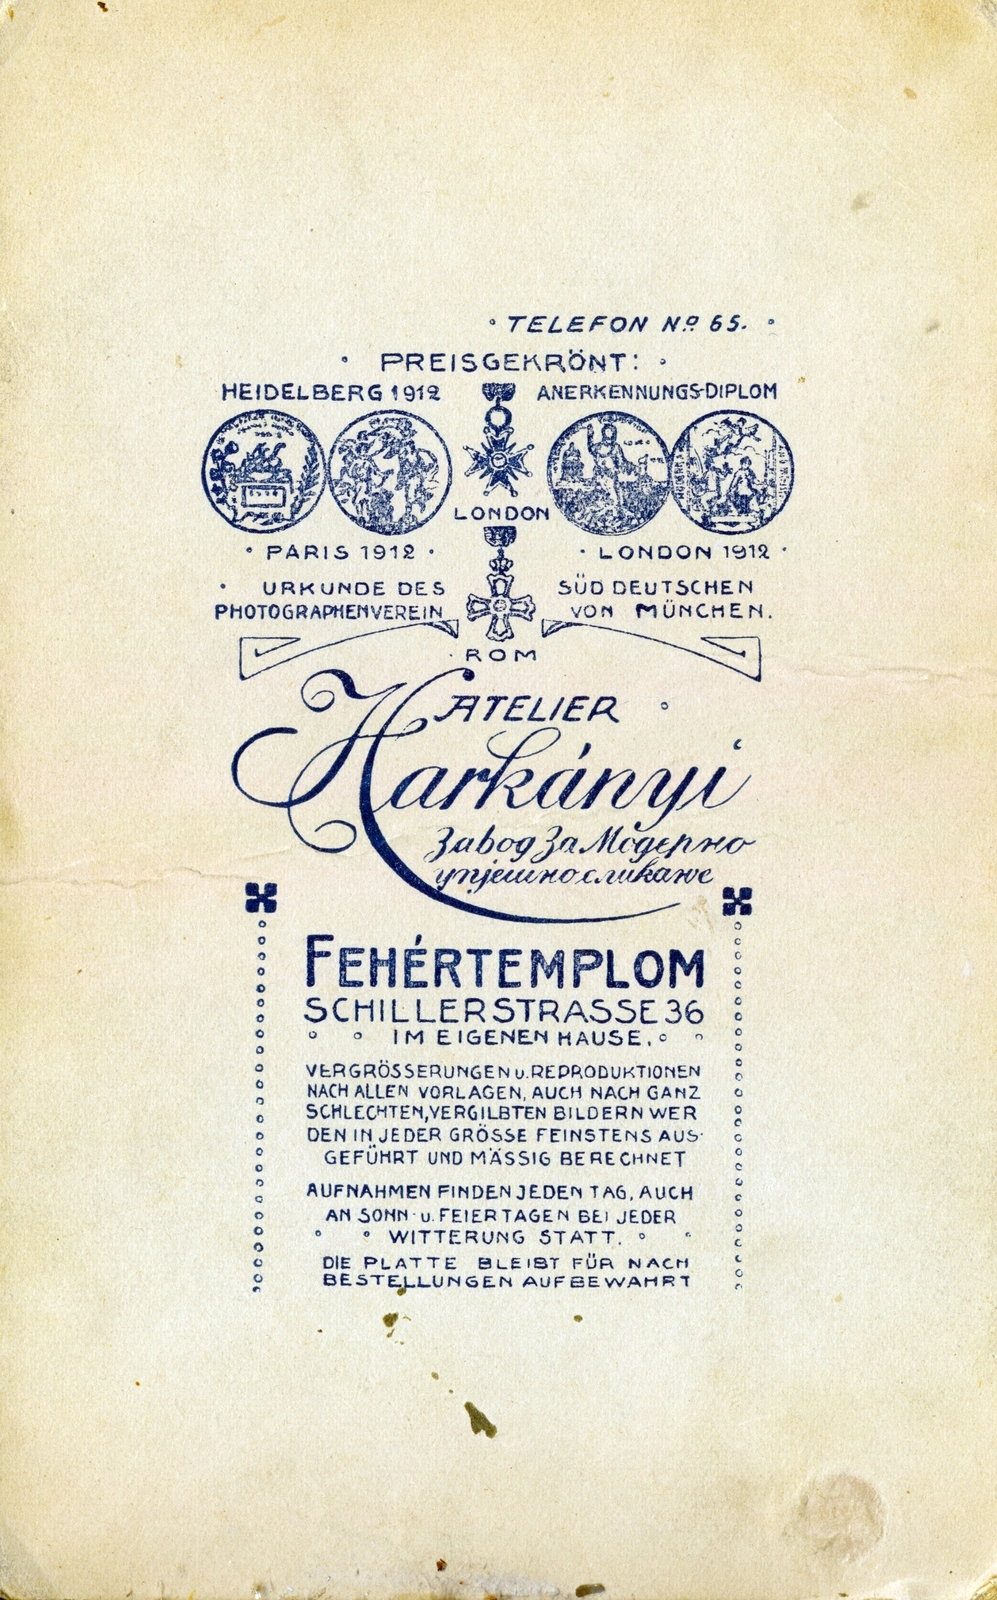 TELEFON Nº 65.
PREISGEKRÖNT:
HEIDELBERG 1912
ANERKENNUNGS-DIPLOM
LONDON
PARIS 1912
LONDON 1912
URKUNDE DES SÜDDEUTSCHEN
PHOTOGRAPHENVEREIN VON MÜNCHEN.
ROM
ATELIER
Harkányi
Завод За Модерно
упјешно сликање
FEHÉRTEMPLOM
SCHILLERSTRASSE 36
IM EIGENEN HAUSE.
VERGRÖSSERUNGEN u. REPRODUKTIONEN
NACH ALLEN VORLAGEN, AUCH NACH GANZ
SCHLECHTEN, VERGILBTEN BILDERN WER
DEN IN JEDER GRÖSSE FEINSTENS AUS-
GEFÜHRT UND MÄSSIG BERECHNET
AUFNAHMEN FINDEN JEDEN TAG, AUCH
AN SONN- u. FEIERTAGEN BEI JEDER
WITTERUNG STATT.
DIE PLATTE BLEIBT FÜR NACH
BESTELLUNGEN AUFBEWAHRT